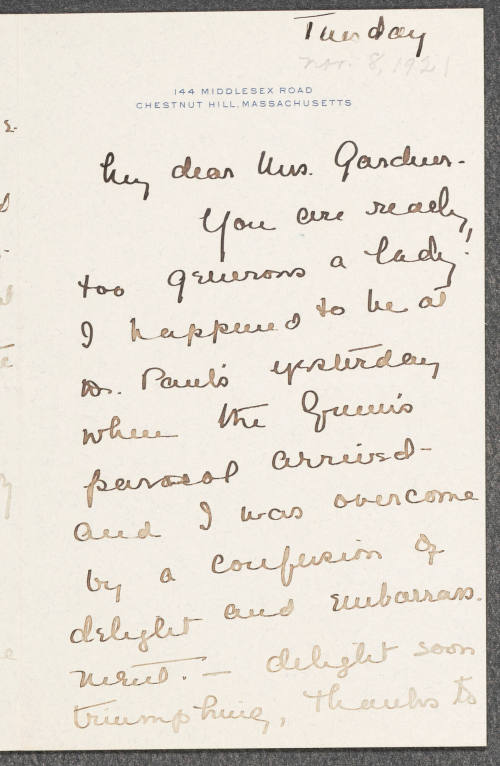 Tuesday
Nov. 8, 1921
144 MIDDLESEX ROAD
CHESTNUT HILL, MASSACHUSETTS
My dear Mrs. Gardner-
You are really
too generous a lady!
I happened to be at
Dr. Paul's yesterday
when the
parasol arrived-
and I was overcome
by a confusion of
delight and embarrass-
ment. - delight soon
triumphing, thanks to